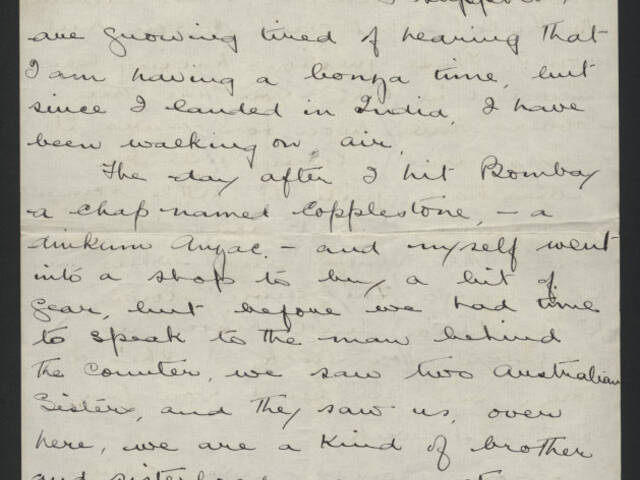 I suppose
are growing tired of hearing that
I am having a bonza time, but
since I landed in India, I have
been walking on air.
The day after I hit Bombay
a chap named Copplestone, - a
dinkum Anzac, - and myself went
into a shop to buy a bit of
gear, but before we had time
to speak to the man behind
the counter, we saw two Australian
Sisters, and they saw us, over
here, we are a kind of brother
and